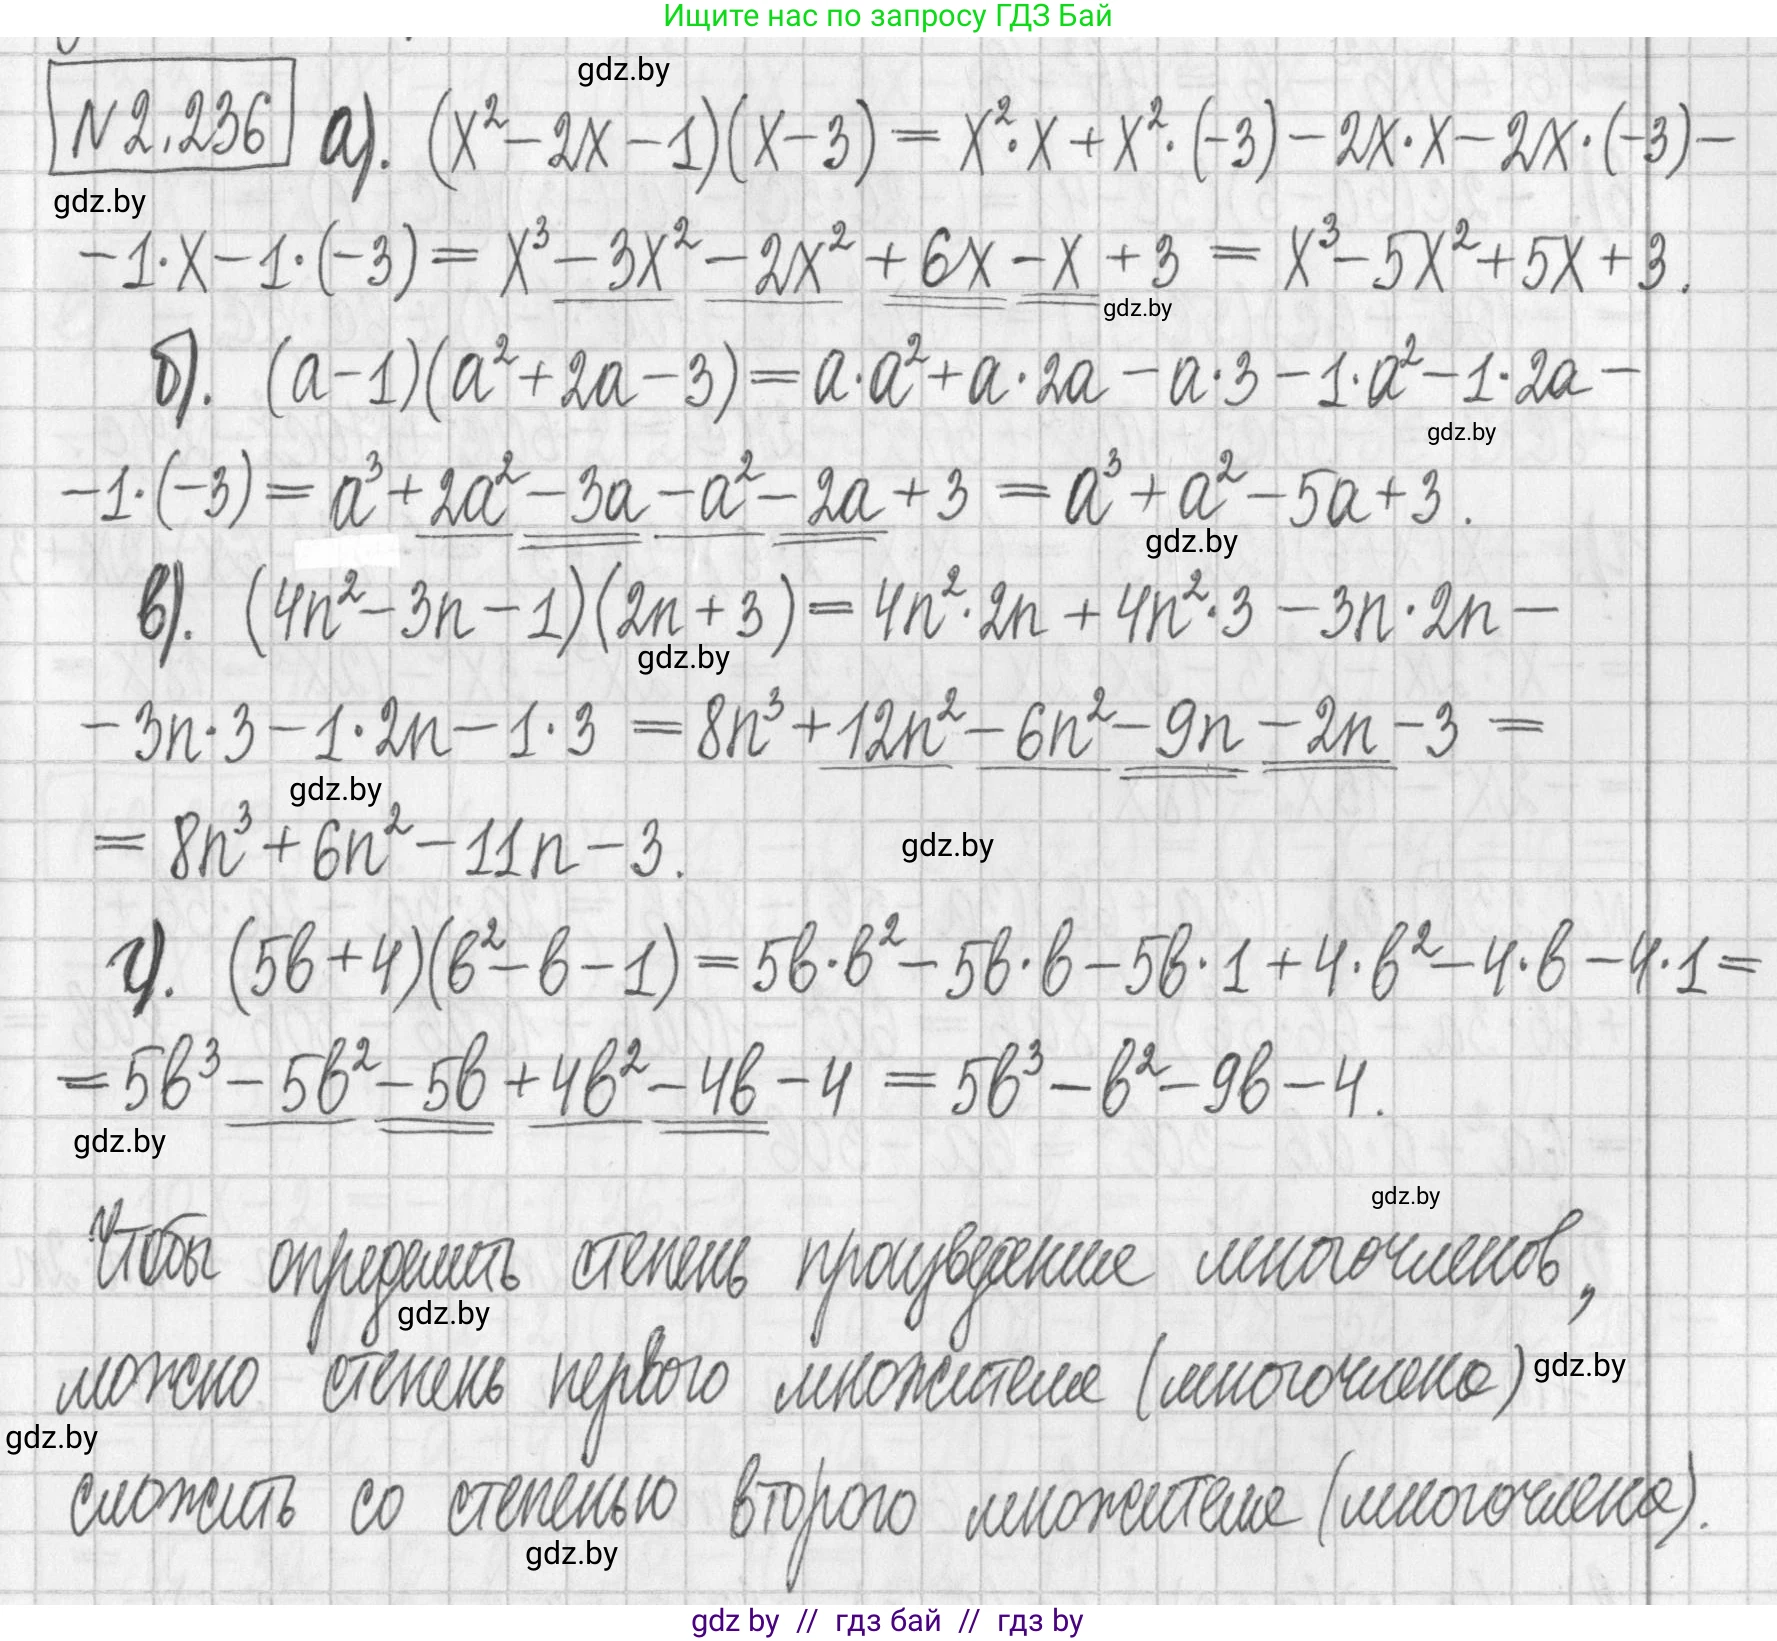 Ищите нас по запросу ГДЗ Бай
gdz.by
№ 2.236 а). (x² − 2x − 1)(x − 3) = x²·x + x²·(−3) − 2x·x − 2x·(−3) −
gdz.by
− 1·x − 1·(−3) = x³ − 3x² − 2x² + 6x − x + 3 = x³ − 5x² + 5x + 3.
gdz.by
б). (a − 1)(a² + 2a − 3) = a·a² + a·2a − a·3 − 1·a² − 1·2a −
gdz.by
− 1·(−3) = a³ + 2a² − 3a − a² − 2a + 3 = a³ + a² − 5a + 3.
gdz.by
в). (4n² − 3n − 1)(2n + 3) = 4n²·2n + 4n²·3 − 3n·2n −
gdz.by
− 3n·3 − 1·2n − 1·3 = 8n³ + 12n² − 6n² − 9n − 2n − 3 =
gdz.by
= 8n³ + 6n² − 11n − 3.
gdz.by
г). (5b + 4)(b² − b − 1) = 5b·b² − 5b·b − 5b·1 + 4·b² − 4·b − 4·1 =
= 5b³ − 5b² − 5b + 4b² − 4b − 4 = 5b³ − b² − 9b − 4.
gdz.by
gdz.by
Чтобы определить степень произведение многочленов,
gdz.by
можно степень первого множителя (многочлена)
gdz.by
gdz.by
сложить со степенью второго множителя (многочлена).
gdz.by
gdz by // гдз бай // гдз by